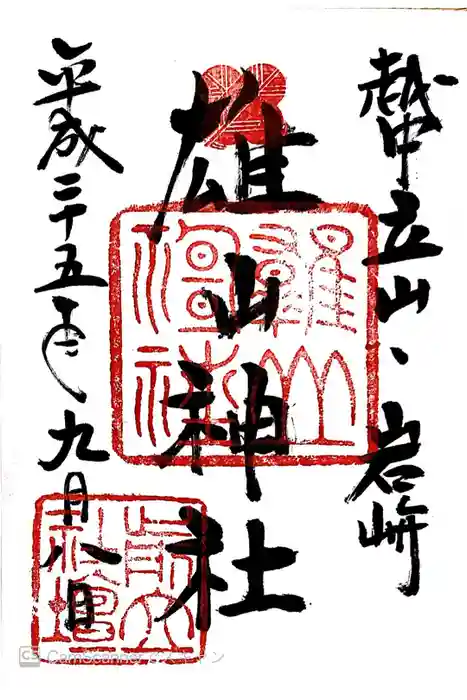 越中立山、岩峅
雄山神社
平成二十五年九月八日
雄山神社
前立社壇
CS CamScanner でスキャン